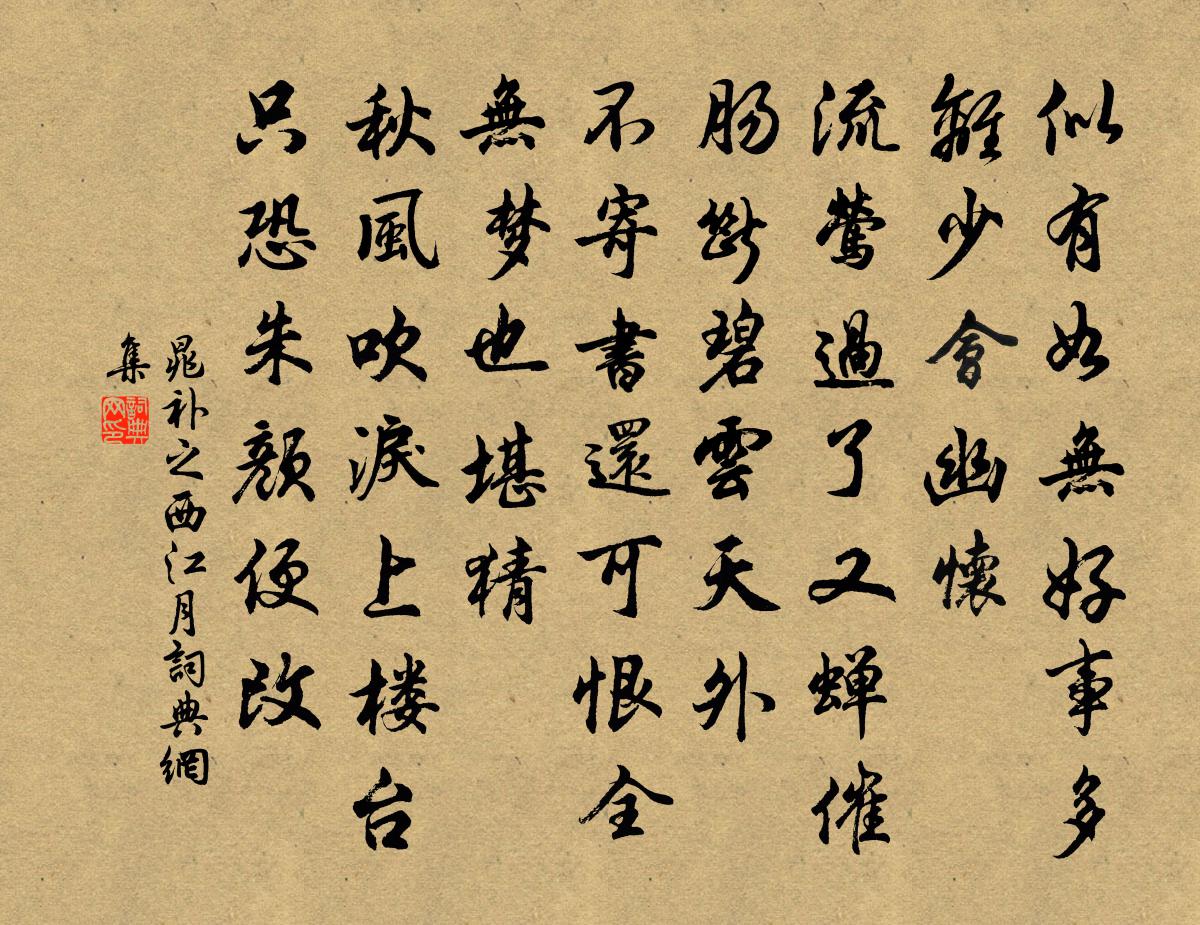 似有如無好事多
離少會幽懷
流鶯過了又蝉催
肠斷碧雲天外
不寄書還可恨全
無梦也堪猜
秋風吹淚上楼台
只恐朱顏便改
晁补之西江月詞典網
集
詞典网印